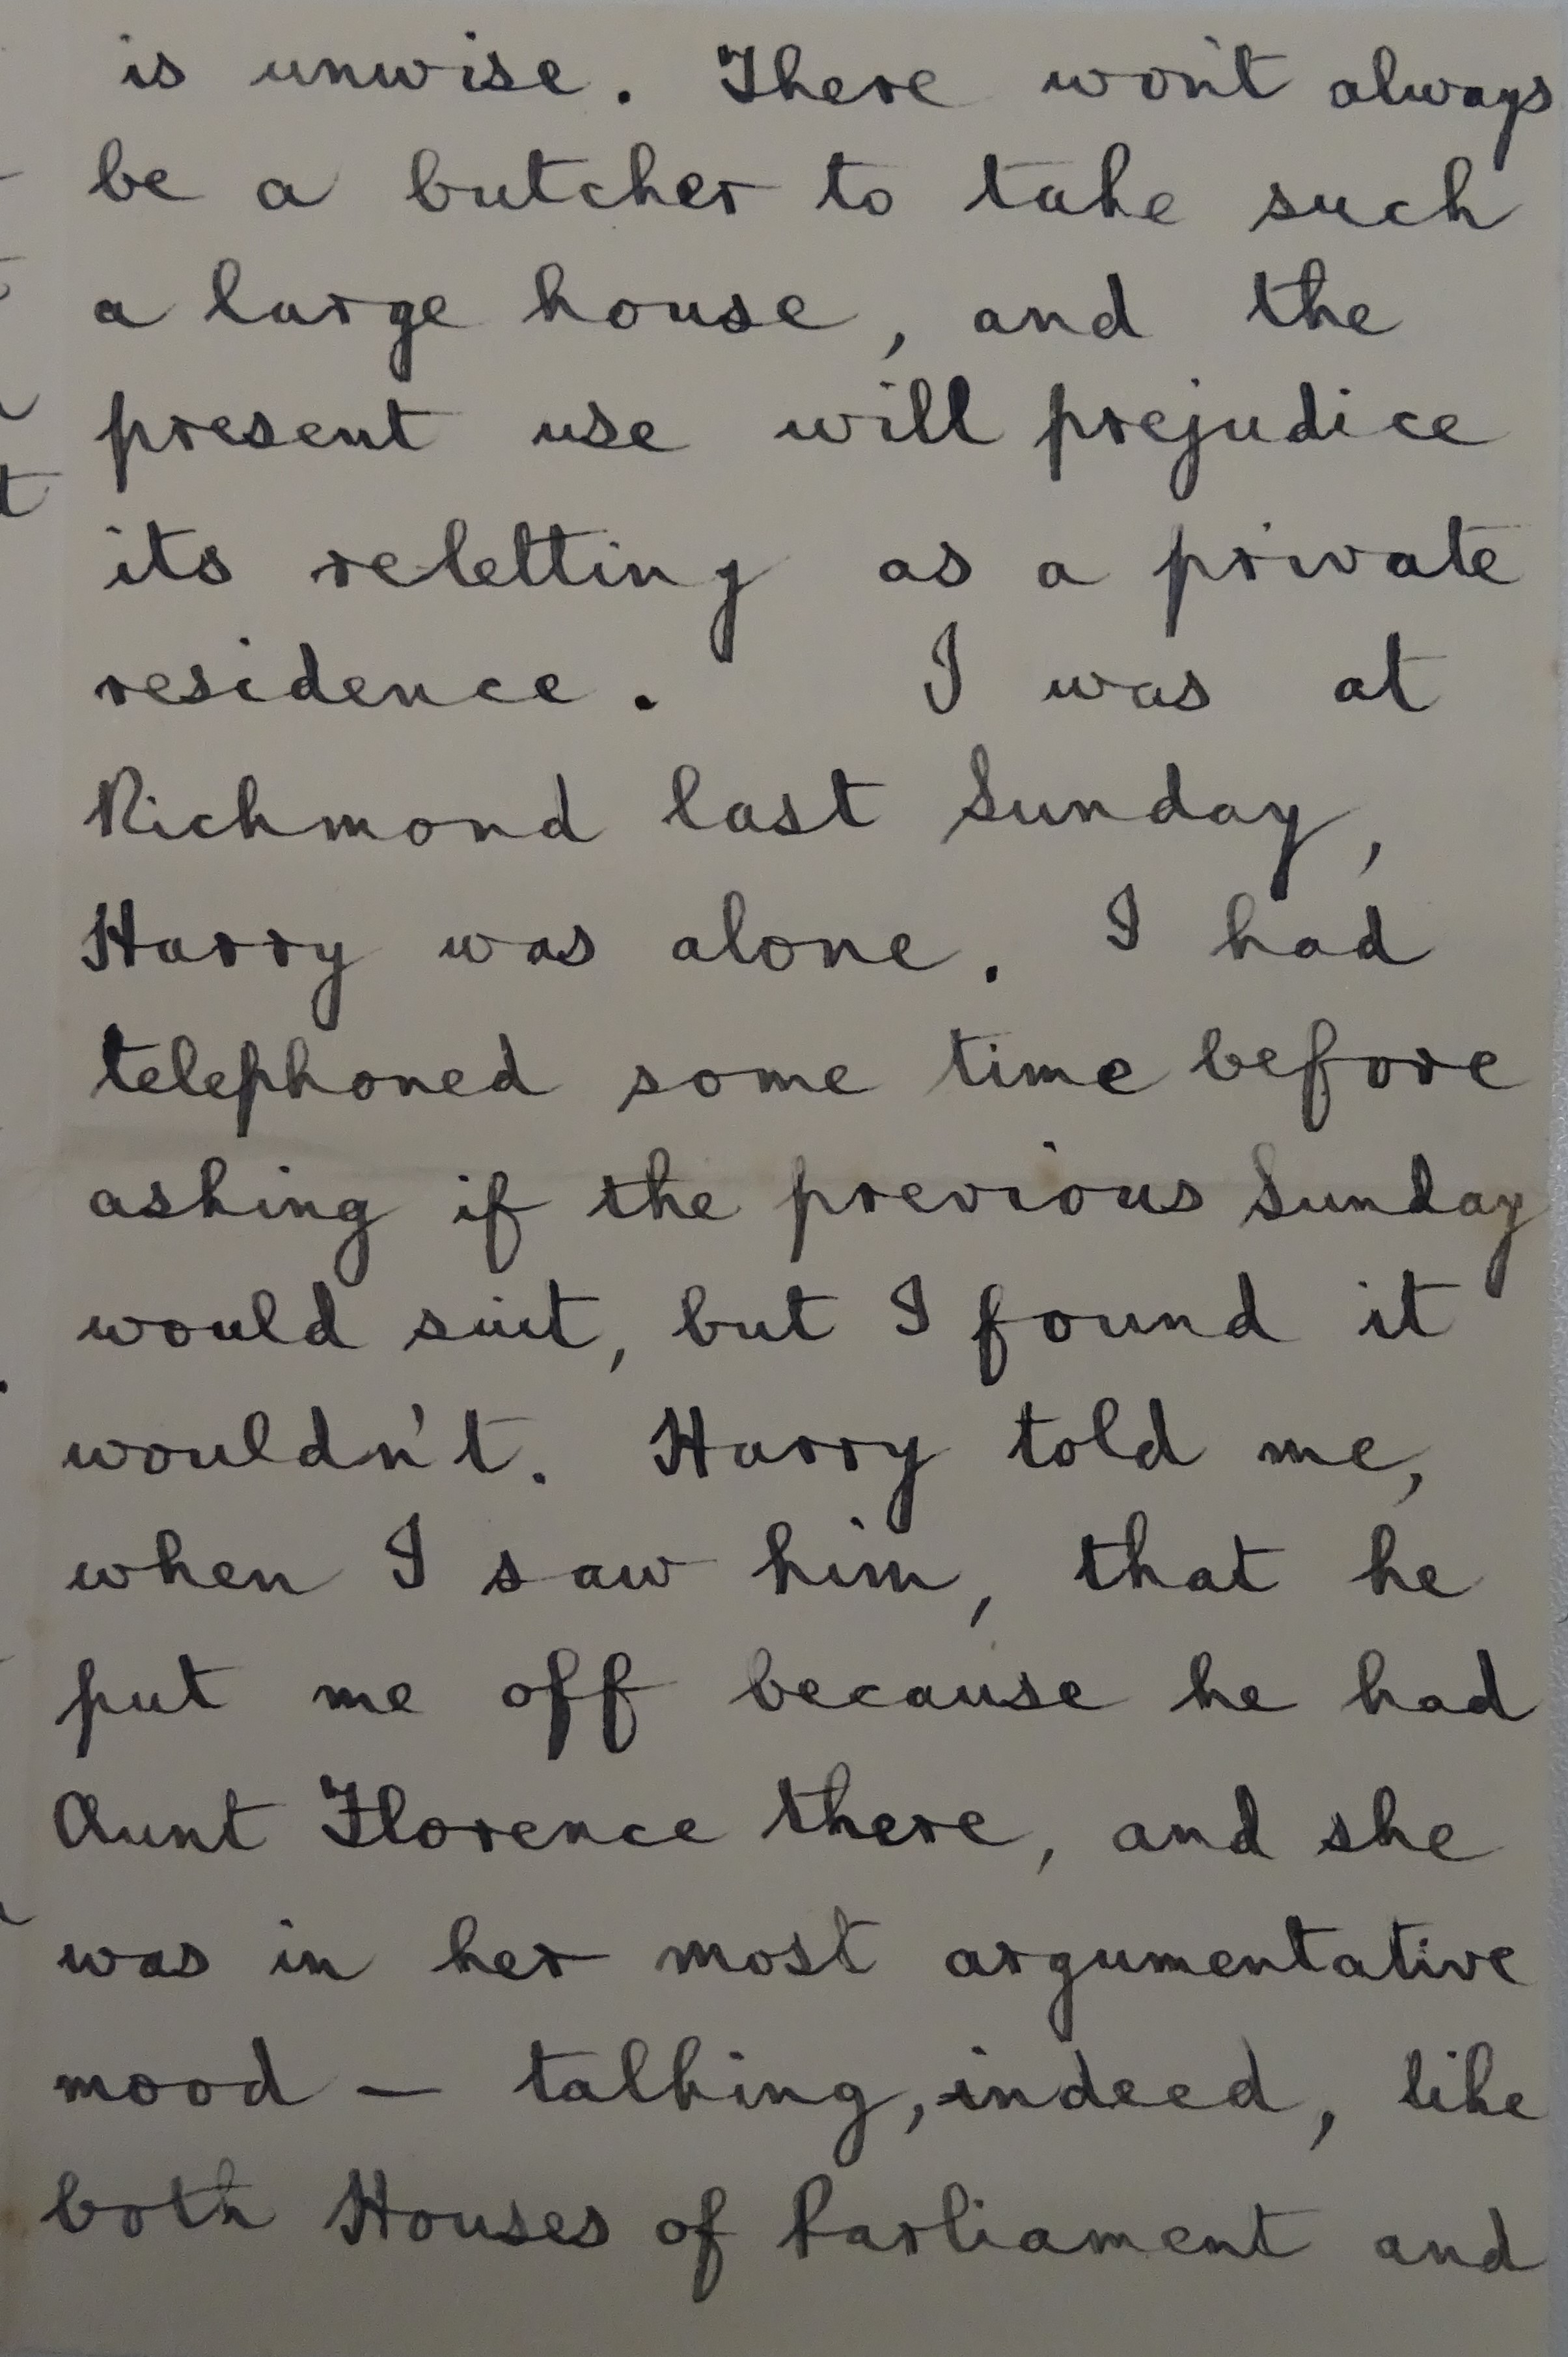 is unwise. There won't always
be a butcher to take such
a large house, and the
present use will prejudice
its reletting as a private
residence. I was at
Richmond last Sunday,
Harry was alone. I had
telephoned some time before
asking if the previous Sunday
would suit, but I found it
wouldn't. Harry told me,
when I saw him, that he
put me off because he had
Aunt Florence there, and she
was in her most argumentative
mood — talking, indeed, like
both Houses of Parliament and